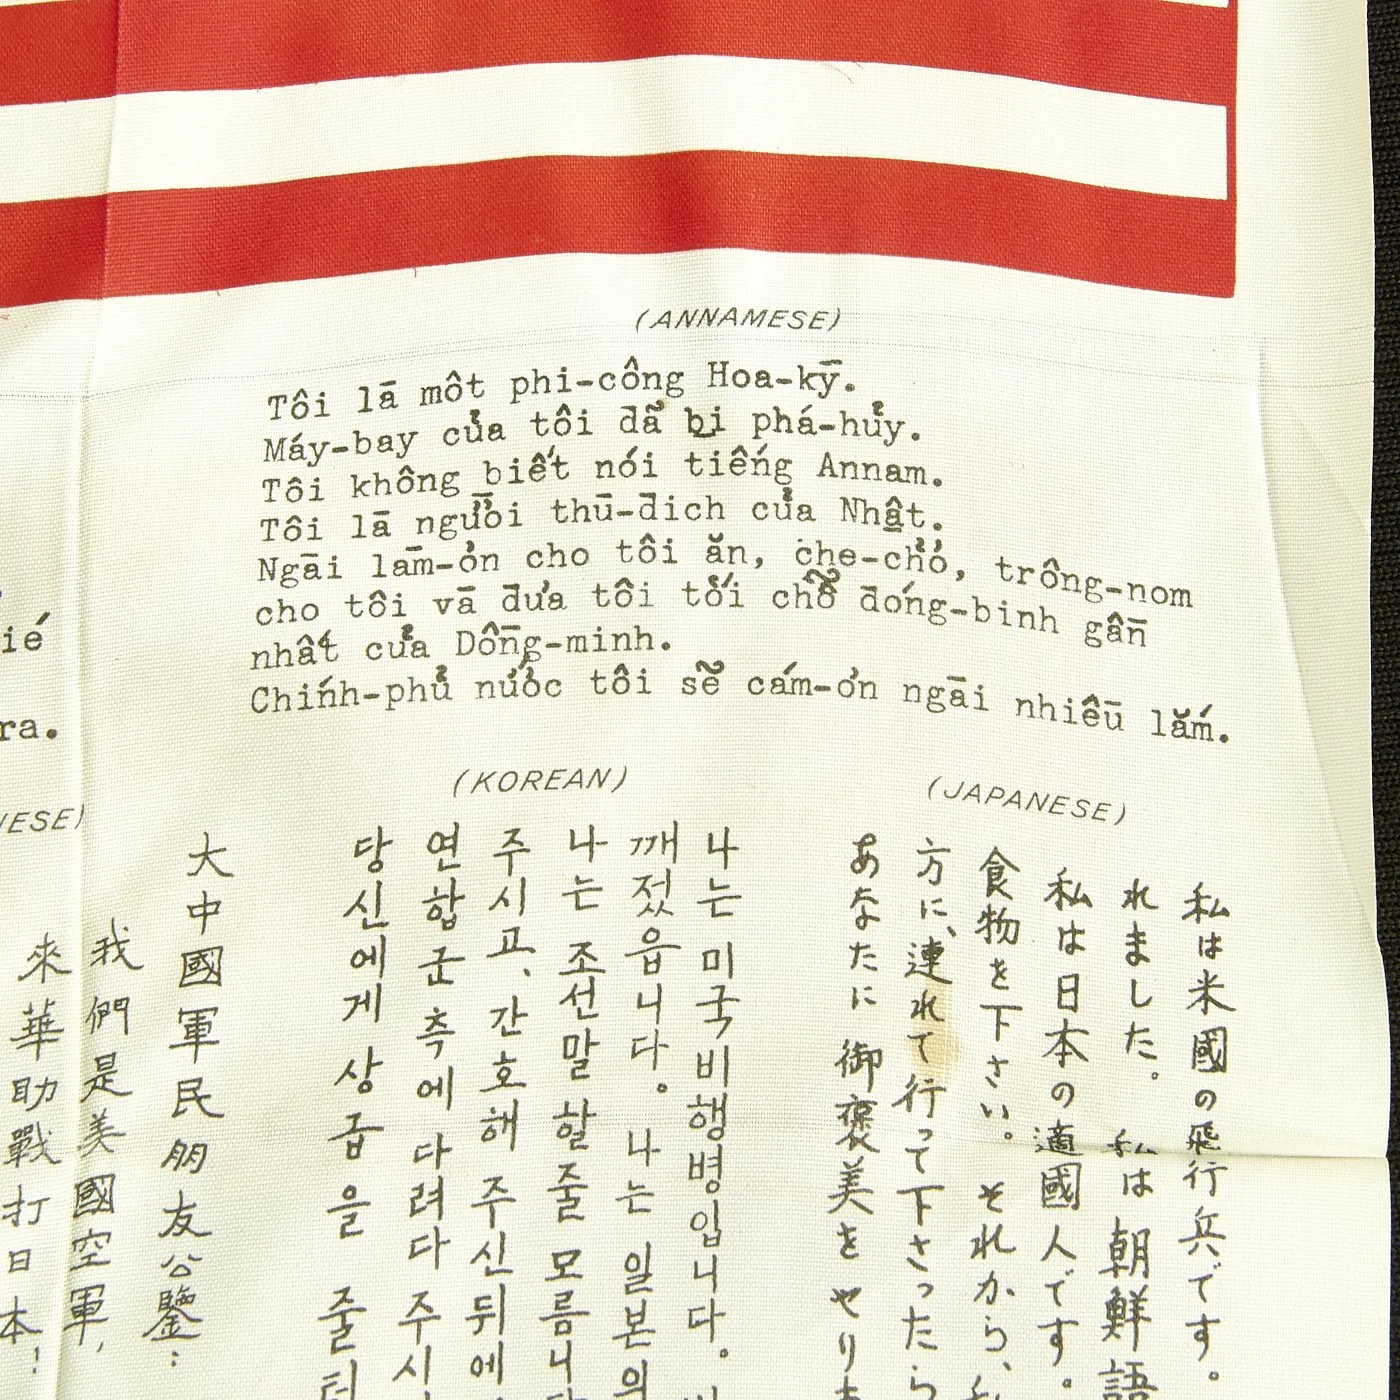 (ANNAMESE)
Tôi lā môt phi-công Hoa-kȳ.
Máy-bay của tôi đẫ bị phá-hủy.
Tôi không biết nói tiếng Annam.
Tôi lā người thū-đich của Nhật.
Ngāi lām-ơn cho tôi ăn, che-chở, trông-nom
cho tôi vā đưa tôi tới chỗ đóng-binh gần
nhất của Dồng-minh.
Chính-phủ nước tôi sẽ cám-ơn ngāi nhiêū lắm.
ié
ra.
(JAPANESE)
私は米國の飛行兵です。
れました。私は朝鮮語
私は日本の適國人です。
食物を下さい。それから、
方に、連れて行って下さったら
あなたに御褒美をやり
(KOREAN)
나는 미국 비행병입니다.
깨졌읍니다. 나는 일본의
나는 조선말 할줄 모름니
주시고, 간호해 주신뒤에
연합군측에 다려다 주시
당신에게 상급을 줄터
ESE)
大中國軍民朋友公鑒:
我們是美國空軍,
來華助戰打日本!